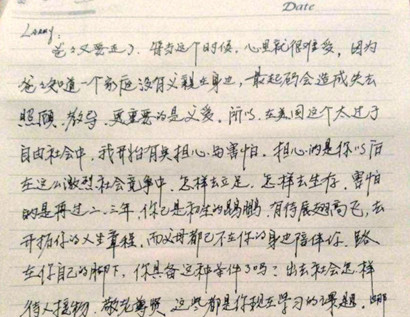 Date
Lenny:
爸爸又要走了. 每当这个时候, 心里就很难受, 因为
爸爸知道一个家庭没有父亲在身边, 最起码会造成失去
照顾、教导、更重要的是父爱. 所以, 在美国这个太过于
自由社会中, 我开始有些担心与害怕. 担心的是你以后
在这么激烈社会竞争中, 怎样去立足, 怎样去生存. 害怕
的是再过二、三年, 你已是初生的鹍鹏, 有待展翅高飞, 去
开拓你的人生章程, 而父母都已不在你的身边陪伴你. 路
在你自己的脚下, 你具备这种条件了吗? 出去社会怎样
待人接物, 敬老尊贤, 这些都是你现在学习的课题, 哪